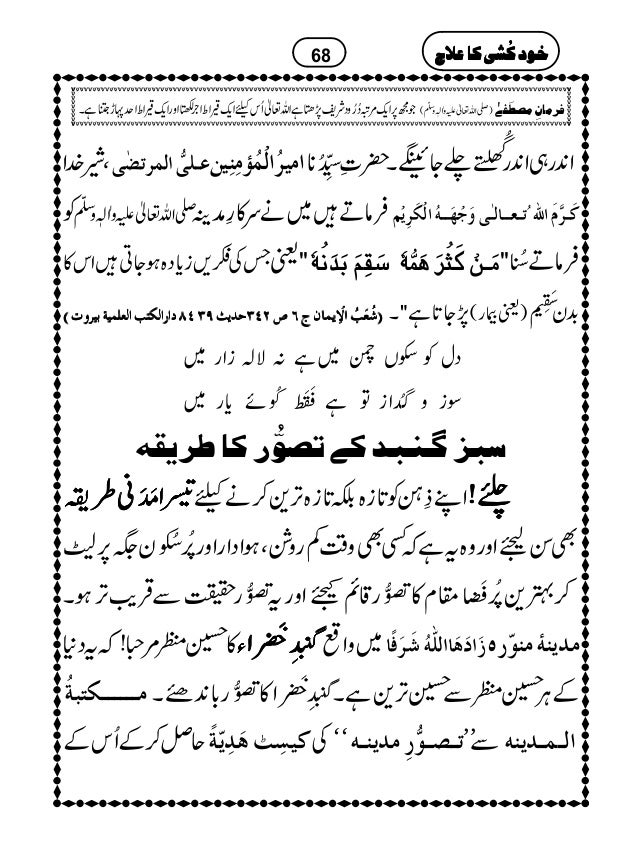 خود کُشی کا علاج
68
فرمانِ مصطفٰے (صلی اللہ تعالیٰ علیہ والہٖ وسلّم) جو مجھ پر ایک مرتبہ دُرُود شریف پڑھتا ہے اللہ تعالیٰ اُس کیلئے ایک قیراط اجر لکھتا اور ایک قیراط احد پہاڑ جتنا ہے۔
اندر ہی اندر گُھلتے چلے جائینگے۔ حضرتِ سیِّدُنا امیرُ الْمُؤمِنین علیُّ المرتضٰی، شیرِ خدا
کَرَّمَ اللہُ تُعالٰی وَجْھَہُ الْکَرِیْم فرماتے ہیں میں نے سرکارِ مدینہ صلی اللہ تعالیٰ علیہ والہٖ وسلّم کو
فرماتے سُنا "مَنْ کَثُرَ ھَمُّهٗ سَقِمَ بَدَنُهٗ" یعنی جس کی فکریں زیادہ ہو جاتی ہیں اس کا
بدن سَقِیم (یعنی بیمار) پڑ جاتا ہے"۔ (شُعَبُ الْاِیمان ج ۶ ص ۳۴۲ حدیث ۸۴۳۹ دارالکتب العلمیۃ بیروت)
دل کو سکوں چمن میں ہے نہ لالہ زار میں
سوز و گداز تو ہے فَقَط کُوئے یار میں
سبز گنبد کے تصوُّر کا طریقہ
چلئے! اپنے ذِہن کو تازہ بلکہ تازہ ترین کرنے کیلئے تیسرا مَدَنی طریقہ
بھی سن لیجئے اور وہ یہ ہے کہ کسی بھی وقت کم روشن، ہوادار اور پُرسُکون جگہ پر لیٹ
کر بہترین پُر فَضا مقام کا تصوُّر قائم کیجئے اور یہ تصوُّر حقیقت سے قریب تر ہو۔
مدینۂ منوّرہ زَادَھَا اللہُ شَرَفًا میں واقِع گنبدِ خَضراء کا حسین منظر مرحبا! کہ یہ دنیا
کے ہر حسین منظر سے حسین ترین ہے۔ گنبدِ خَضرا کا تصوُّر باندھئے۔ مکتبۃُ
المدینہ سے ’’تصوُّرِ مدینہ‘‘ کی کیسِٹ ھَدِیَّۃً حاصل کر کے اُس کے